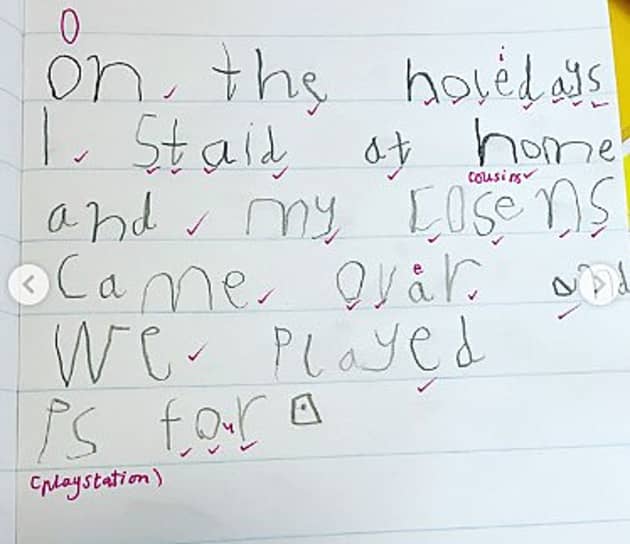 O
i
on the holedays
I Staid at home
cousins
and my cosens
e
Came ovar and
We Played
u
PS for
(playstation)